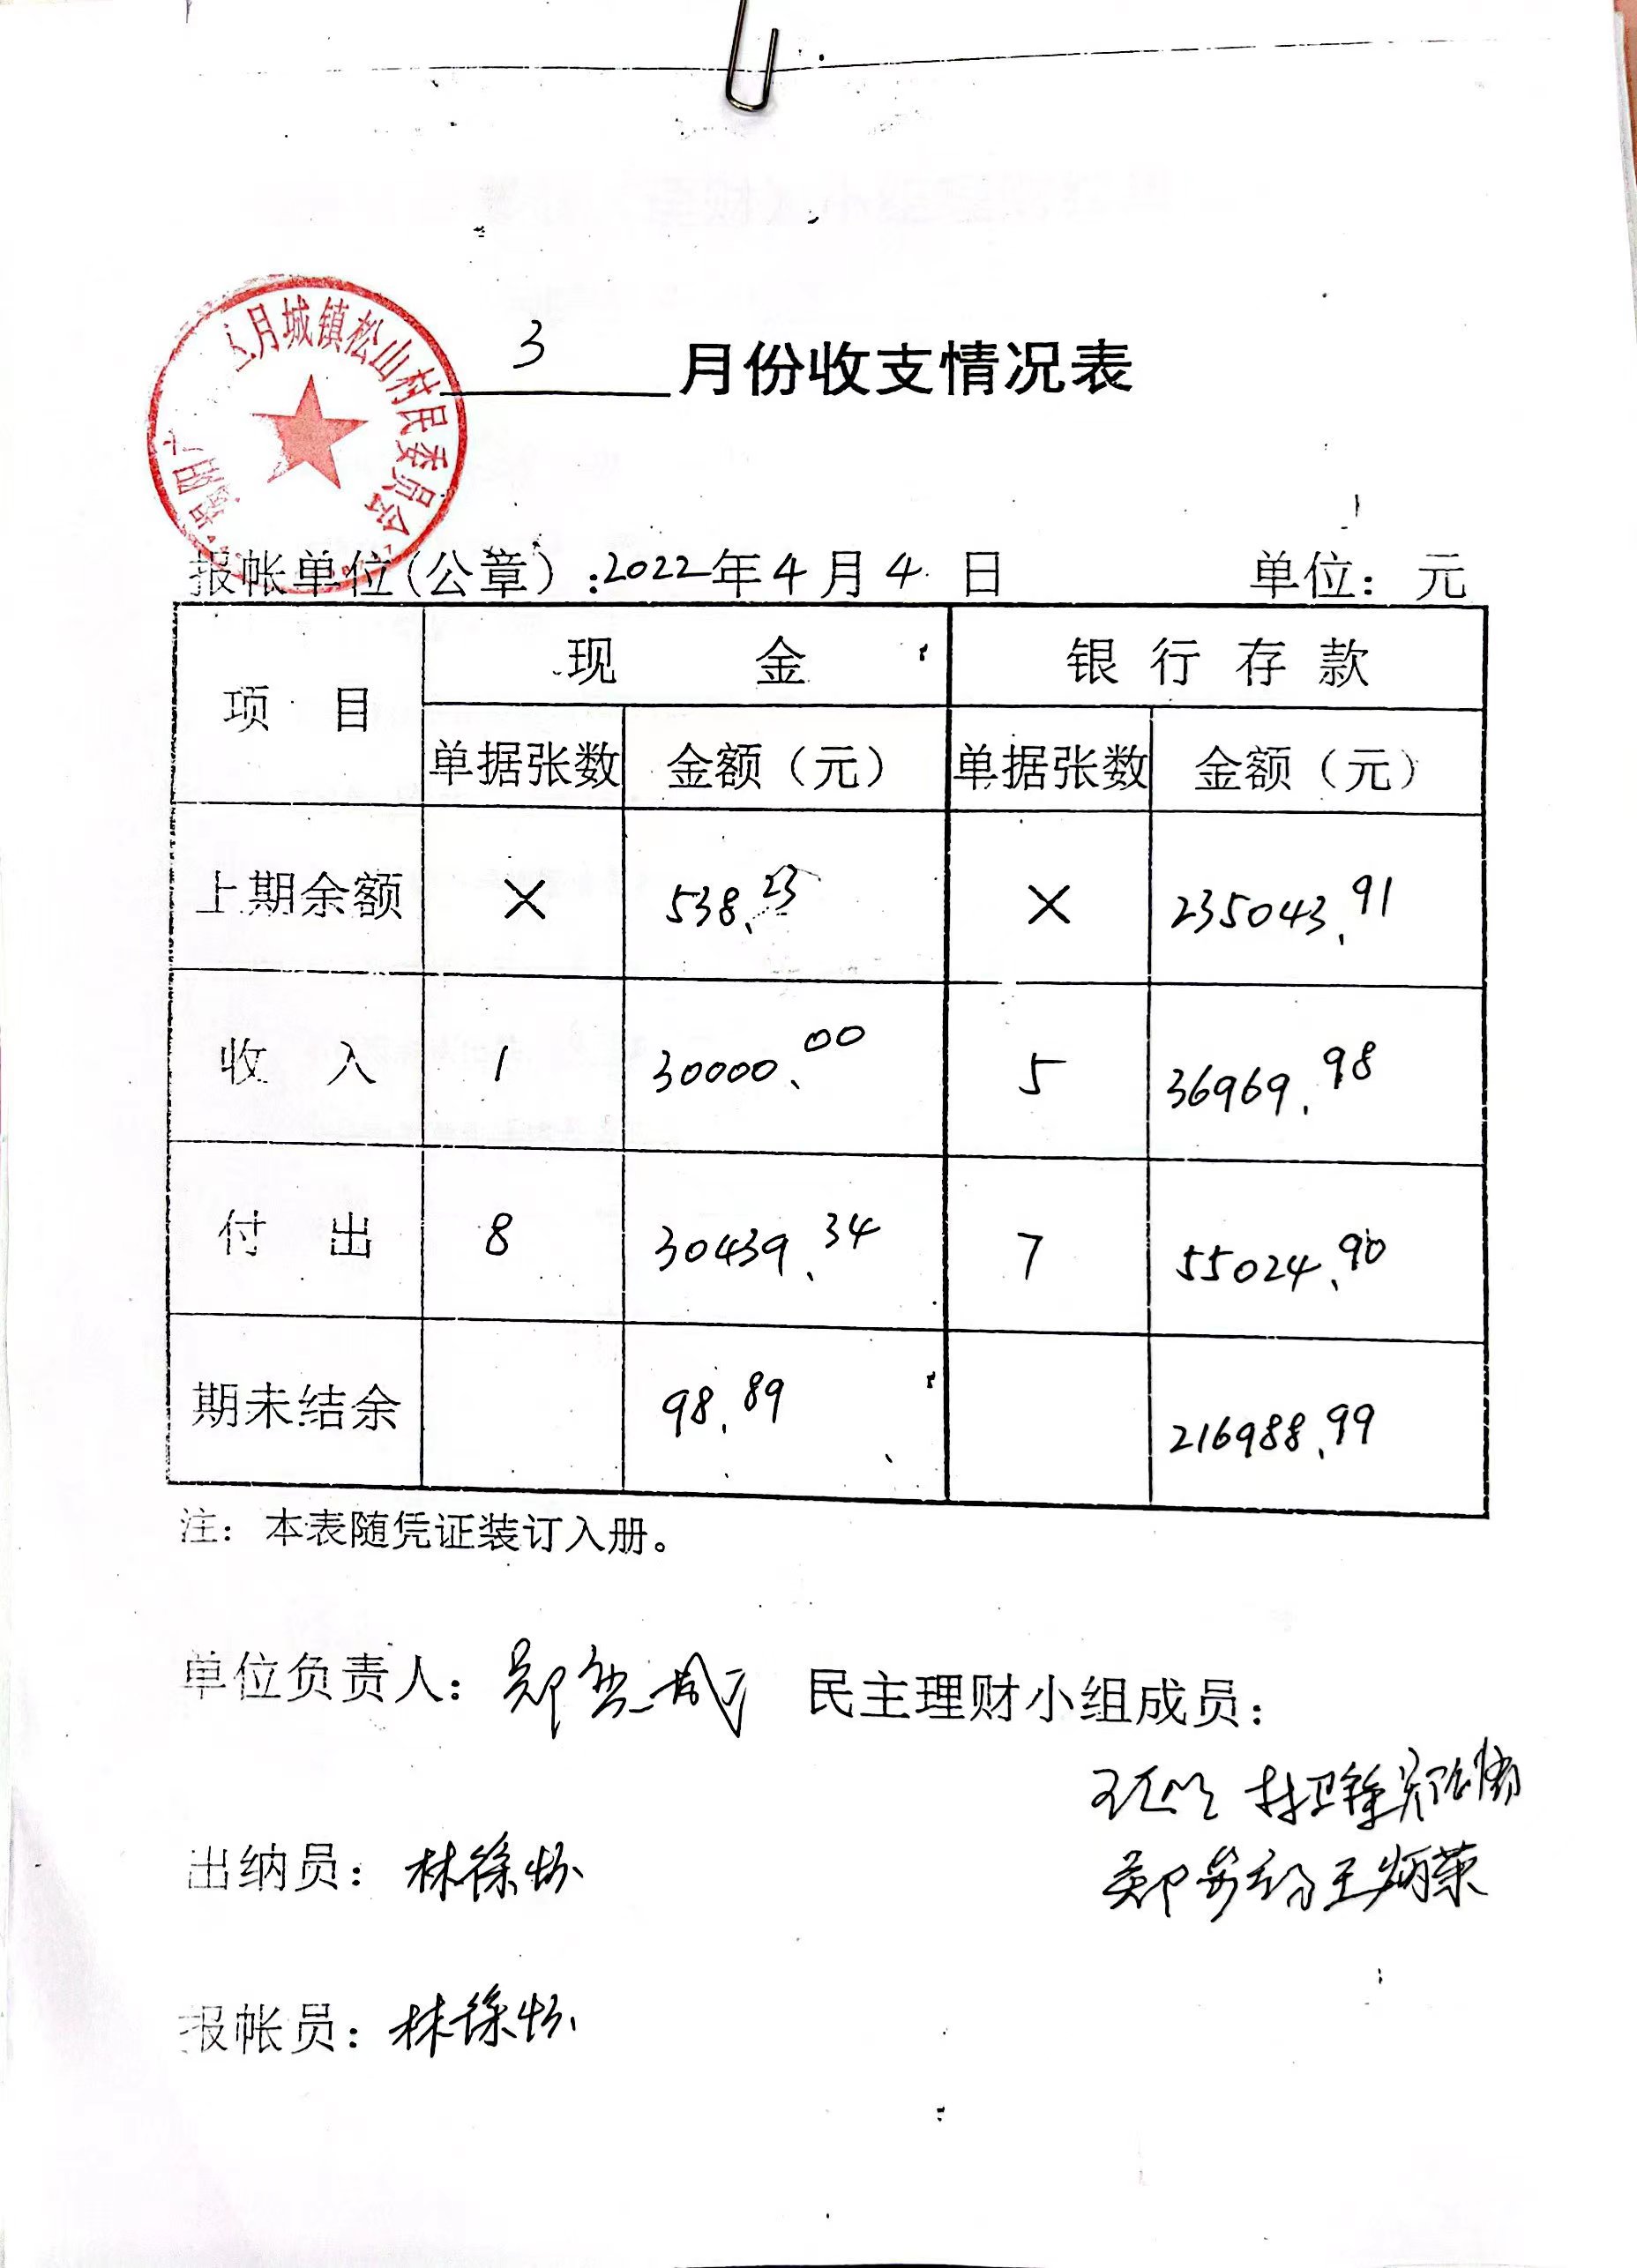 月城镇松山村民委员会
3 月份收支情况表
报帐单位(公章):2022年4月4日 单位:元
项 目 现 金 银行存款
单据张数 金额(元) 单据张数 金额(元)
上期余额 × 538.23 × 235043.91
收 入 1 30000.00 5 36969.98
付 出 8 30439.34 7 55024.90
期未结余 98.89 216988.99
注:本表随凭证装订入册。
单位负责人:郑 民主理财小组成员:
出纳员:林徐
王炳荣
报帐员:林徐